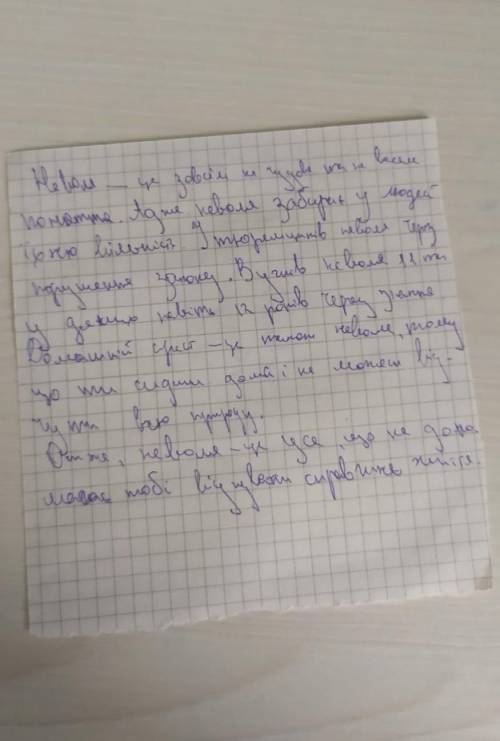 Неволя — це зовсім не чудове та не веселе
поняття. Адже неволя забирає у людей
їхню вільність. У тюремщиків неволя через
порушення закону. В учнів неволя 11 та
у деяких навіть 12 років через навчання.
Домашній арест — це також неволя, тому
що ти сидиш дома і не можеш від-
чути всю природу.
Отже, неволя — це усе, що не допо
магає тобі відчувати справжнє життя.